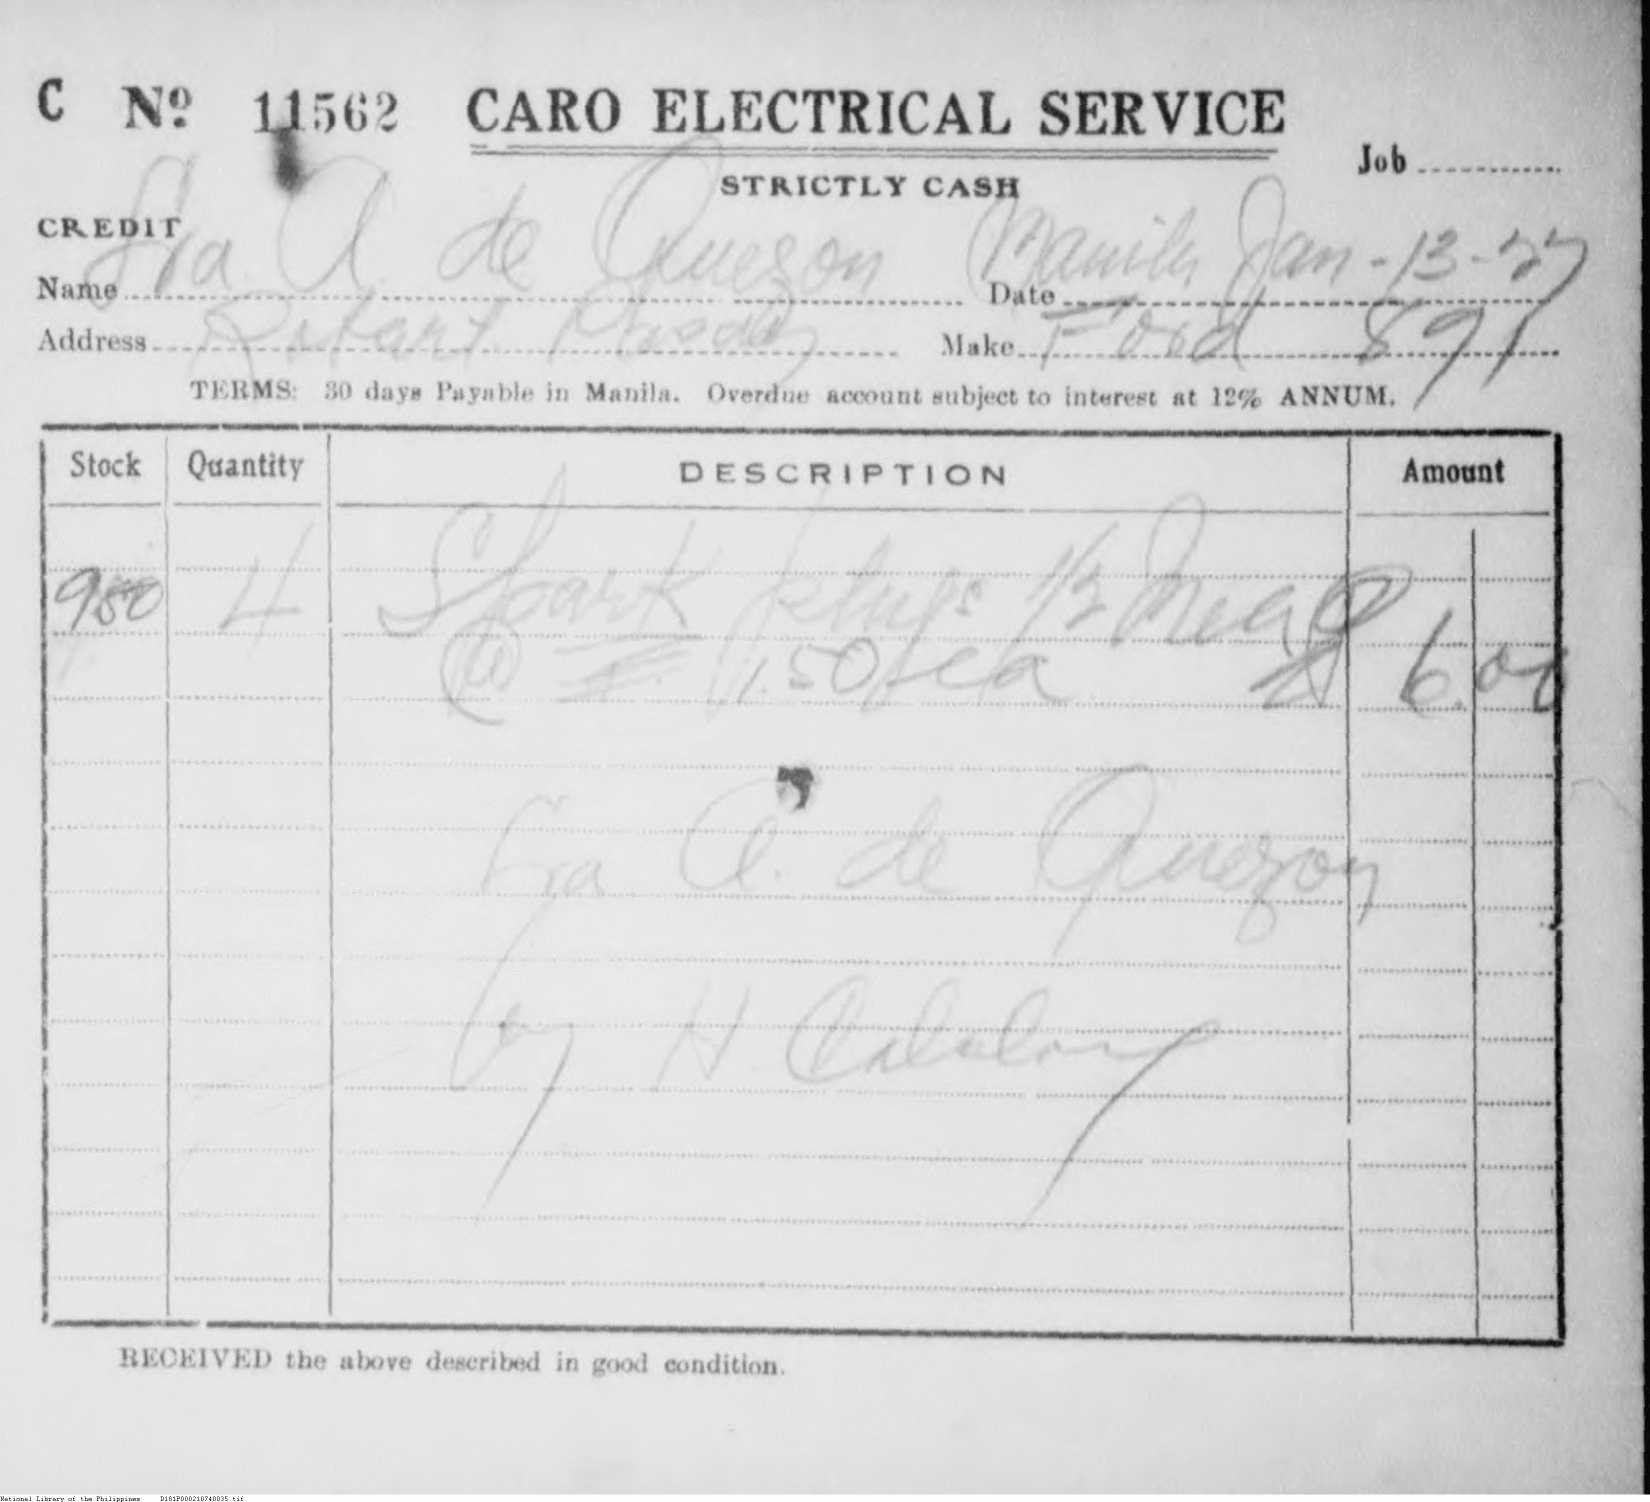 C Nº 11562 CARO ELECTRICAL SERVICE
Job
STRICTLY CASH
CREDIT
Name Sra A. de Quezon Date Manila Jan-13-27
Address Make Ford 891
TERMS: 30 days Payable in Manila. Overdue account subject to interest at 12% ANNUM.
Stock Quantity DESCRIPTION Amount
950 4 Spark plugs 1/2
@ 1.50 ea 6.00
Sra A. de Quezon
by H
RECEIVED the above described in good condition.
National Library of the Philippines D181P000210740035.tif